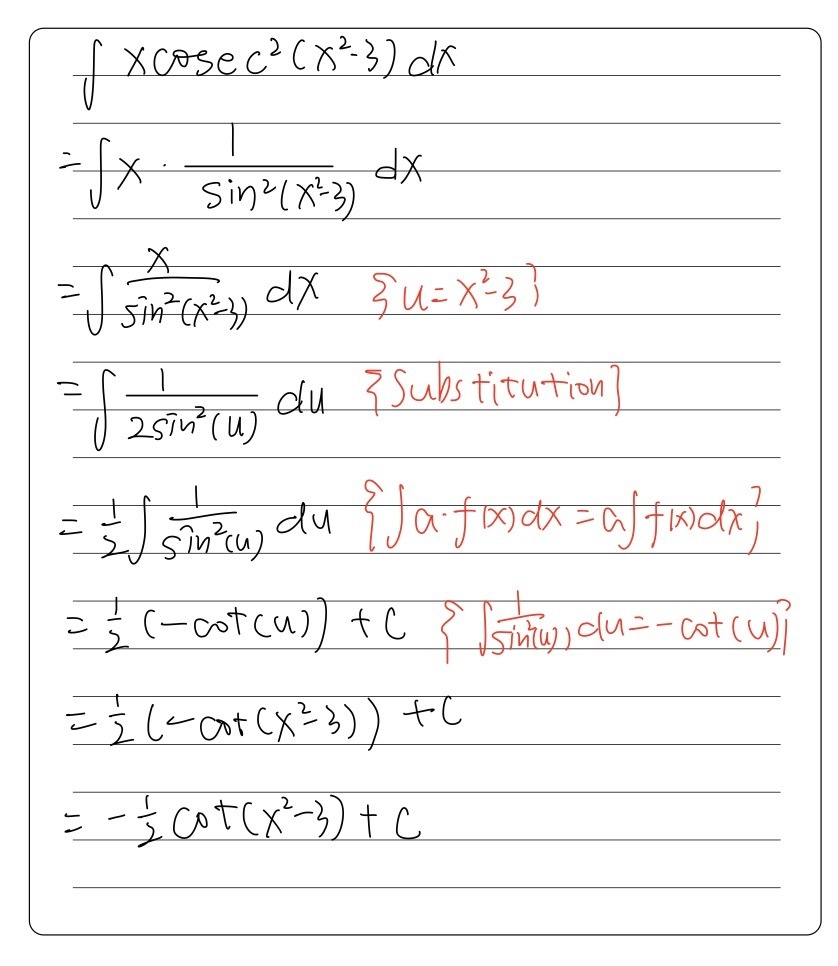 ∫ xcosec²(x²-3) dx
= ∫ x · 1/sin²(x²-3) dx
= ∫ x/sin²(x²-3) dx {u = x²-3}
= ∫ 1/2sin²(u) du {Substitution}
= 1/2 ∫ 1/sin²(u) du {∫a·f(x)dx = a∫f(x)dx}
= 1/2 (-cot(u)) + C {∫ 1/sin²(u) du = -cot(u)}
= 1/2 (-cot(x²-3)) + C
= -1/2 cot(x²-3) + C